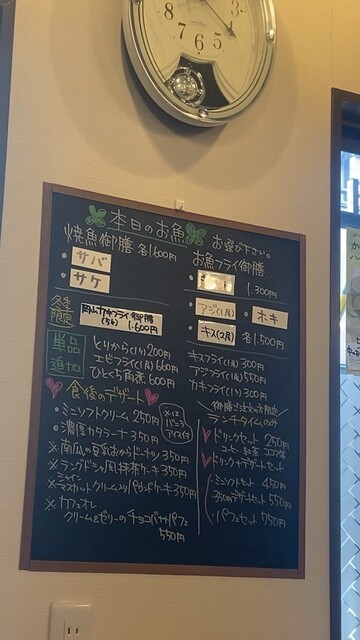 8
7
6
5
4
3
本日のお魚
お選び下さい。
焼魚御膳 各1600円
・サバ
・サケ
お魚フライ御膳
1.300円
・アジ(1尾)
・ホキ
・キス(2尾)
各1.500円
冬季限定
岡山カキフライ御膳
(5ヶ) 1.600円
単品追加
とりから(1ヶ)200円
エビフライ(1本)660円
ひとくち角煮 600円
キスフライ(1尾)300円
アジフライ(1尾)550円
カキフライ(1ヶ)300円
食後のデザート
・ミニソフトクリーム 250円
・濃厚カタラーナ 350円
※は
バニラ
アイス付
※南瓜の豆乳おからドーナツ 350円
※ラングドシャ風抹茶ケーキ 350円
※シャインマスカットクリーム入りパリブレドケーキ 350円
※カフェオレ
クリーム&ゼリーのチョコバナナパフェ
550円
御膳ご注文の方限定
ランチタイムのみ
ドリンクセット 250円
コーヒー・紅茶 ココア等
ドリンク+デザートセット
・ミニソフトセット 450円
・350円デザートセット 550円
・パフェセット 750円